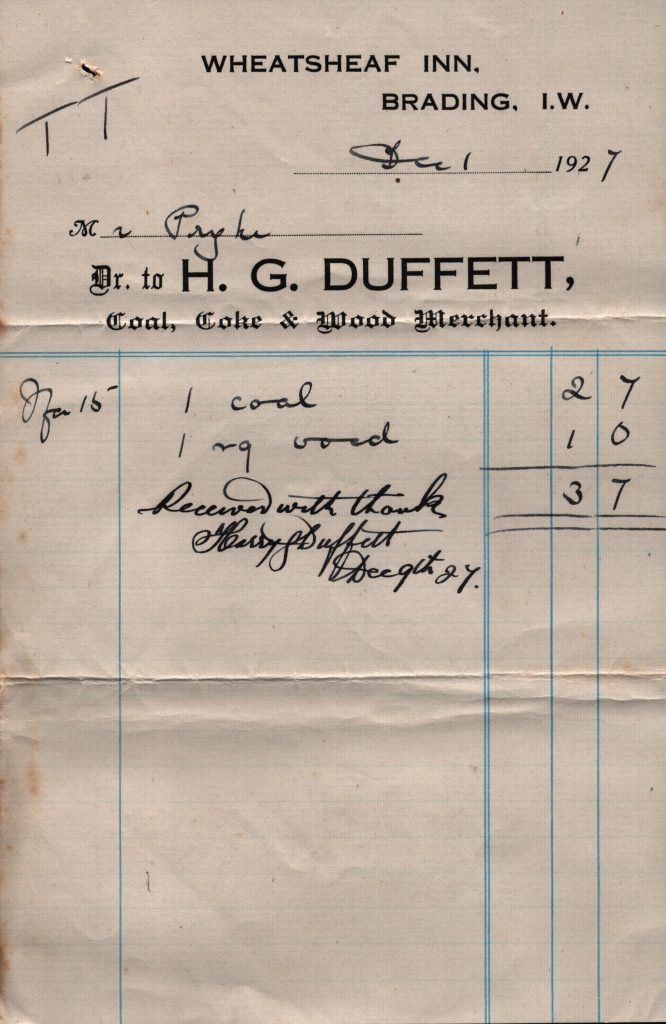 WHEATSHEAF INN,
BRADING, I.W.
Dec 1 1927
Mr Pryke
Dr. to H. G. DUFFETT,
Coal, Coke & Wood Merchant.
15 1 coal 2 7
1 wood 1 0
3 7
Received with thanks
Harry G Duffett
Dec 9th 27.